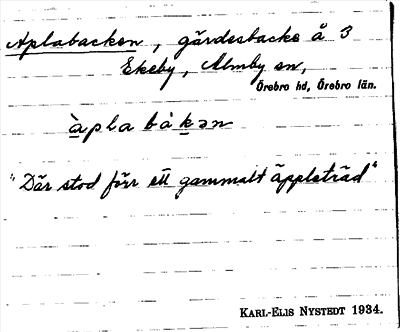 Aplabacken, gärdesbacke å 3
Ekeby, Almby sn,
Örebro hd, Örebro län.
àpla bàkən
"Där stod förr ett gammalt äppleträd"
KARL-ELIS NYSTEDT 1934.